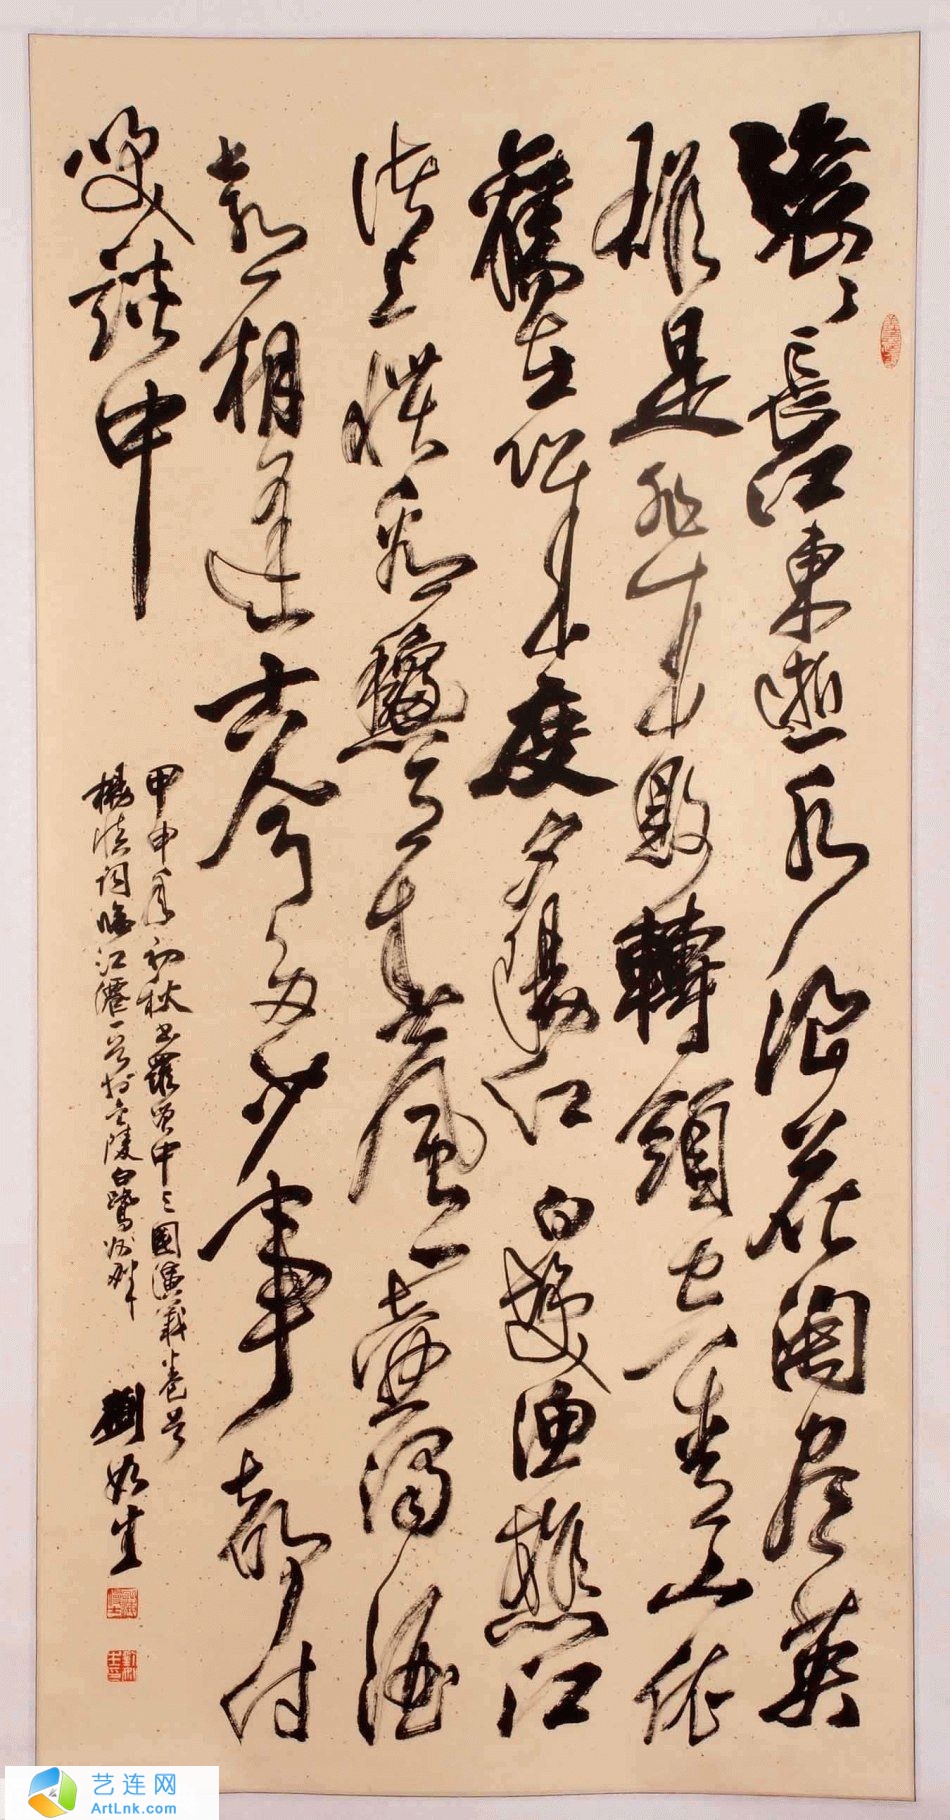 滚〻長江東逝水浪花淘尽英
雄是非成敗轉頭空青山依
舊在几度夕陽红白髮渔樵江
渚上惯看秋月春風一壶濁酒
喜相逢古今多少事都付
笑談中
甲申年初秋书羅贯中三國演義卷首
楊慎词临江僊一首於金陵白鹭洲畔
劉
生
艺连网
ArtLnk.com